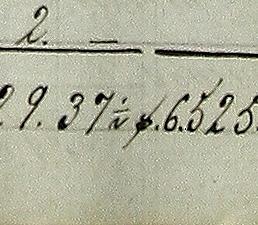 2. —
29.37½ $.6.525.